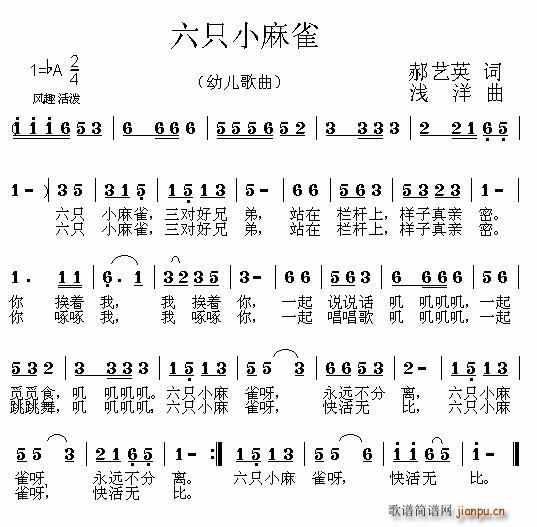 六只小麻雀
1=♭A 2/4
（幼儿歌曲）
郝艺英 词
浅 洋 曲
风趣 活泼
(i i i 6 5 3 | 6 6 6 6 | 5 5 5 6 5 2 | 3 3 3 3 | 2 2 2 1 | 6 5 |
1 - ) | 3 5 | 3 1 5 | 1 5 1 3 | 5 - | 6 6 | 5 3 5 | 2 2 5 3 | 1 - |
六只 小麻雀，三对好兄 弟，站在 栏杆上，样子真亲 密。
六只 小麻雀，三对好兄 弟，站在 栏杆上，样子真亲 密。
1 . 1 1 | 6 . 1 | 3 2 3 5 | 3 - | 6 6 | 5 3 2 | 6 6 6 6 | 5 5 |
你 挨着 我， 我 挨着 你，一起 说说话 叽 叽叽叽，一起
你 啄啄 我， 我 啄啄 你，一起 唱唱歌 叽 叽叽叽，一起
5 3 2 | 3 3 3 3 | 1 5 1 3 | 5 5 3 | 2 1 6 5 | 2 - | 1 5 1 3 |
觅觅食，叽 叽叽叽。六只小麻 雀呀， 永远不分 离，六只小麻
跳跳舞，叽 叽叽叽，六只小麻 雀呀， 快活无 比，六只小麻
5 5 3 | 2 1 6 5 | 1 - :| 1 5 1 3 | 5 5 6 | i i 6 5 | i - |
雀呀， 永远不分 离。 六只小麻 雀呀， 快活无 比。
雀呀， 快活无 比。
歌谱简谱网
jianpu.cn